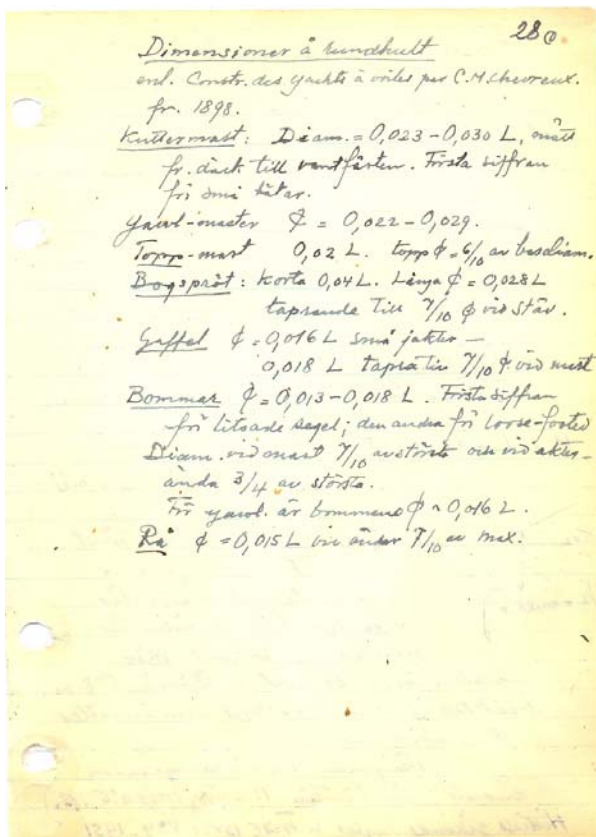 28c
Dimensioner å rundhult
enl. Constr. des yachts à voiles par C.M. Chevreux.
fr. 1898.
Kuttermast: Diam. = 0,023-0,030 L, mätt
fr. däck till vantfästen. Första siffran
för små båtar.
Yawl-master ¢ = 0,022-0,029.
Topp-mast 0,02 L. topp ¢ = 6/10 av basdiam.
Bogspröt: Korta 0,04 L. Långa ¢ = 0,028 L
taprande till 7/10 ¢ vid stäv.
Gaffel ¢ = 0,016 L små jakter -
0,018 L tapra till 7/10 ¢ vid mast
Bommar ¢ = 0,013-0,018 L. Första siffran
för litsade segel; den andra för loose-footed
Diam. vid mast 7/10 av största och vid akter-
ända 3/4 av största.
För yawl. är bommens ¢ = 0,016 L.
Rå ¢ = 0,015 L vid änder 7/10 av max.